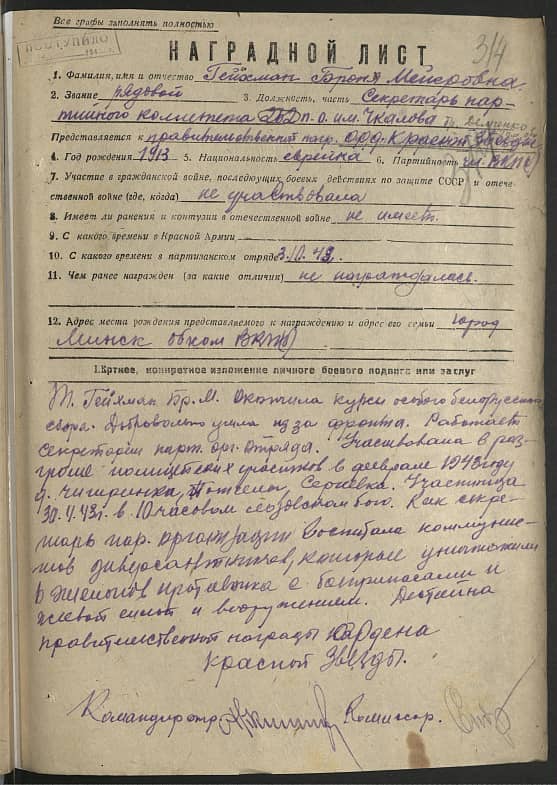 Все графы заполнять полностью
ПОСТУПИЛО
314
НАГРАДНОЙ ЛИСТ
1. Фамилия, имя и отчество Гейхман Броня Мейеровна
2. Звание рядовой 3. Должность, часть Секретарь пар-
тийного комитета п.о. им. Чкалова
Представляется к правительственной наг. орд. Красной Звезды
4. Год рождения 1913 5. Национальность еврейка 6. Партийность чл. ВКП(б)
7. Участие в гражданской войне, последующих боевых действиях по защите СССР и отече-
ственной войне (где, когда) не участвовала
8. Имеет ли ранения и контузии в отечественной войне не имеет.
9. С какого времени в Красной Армии
10. С какого времени в партизанском отряде 43.
11. Чем ранее награжден (за какие отличия) не награждалась.
12. Адрес места рождения представляемого к награждению и адрес его семьи город
Минск обком ВКП(б)
I. Кртнее, конкретное изложение личного боевого подвига или заслуг
Т. Гейхман Бр. М. Окончила курсы особого белорусского
сбора. Добровольно ушла из за фронта. Работает
секретарем парт. орг. отряда. Участвовала в раз-
громе полицейских участков в феврале 1943 году
д. Чигиринка, Сергеевка. Участница
43г. в 10 часовом бою. Как секре-
тарь пар. организации воспитала коммунис-
тов диверсантников, которые уничтожили
6 эшелонов противника с боеприпасами и
живой силой и вооружением. Достойна
правительственной награды Ордена
Красной Звезды.
Командир отр. Комиссар.